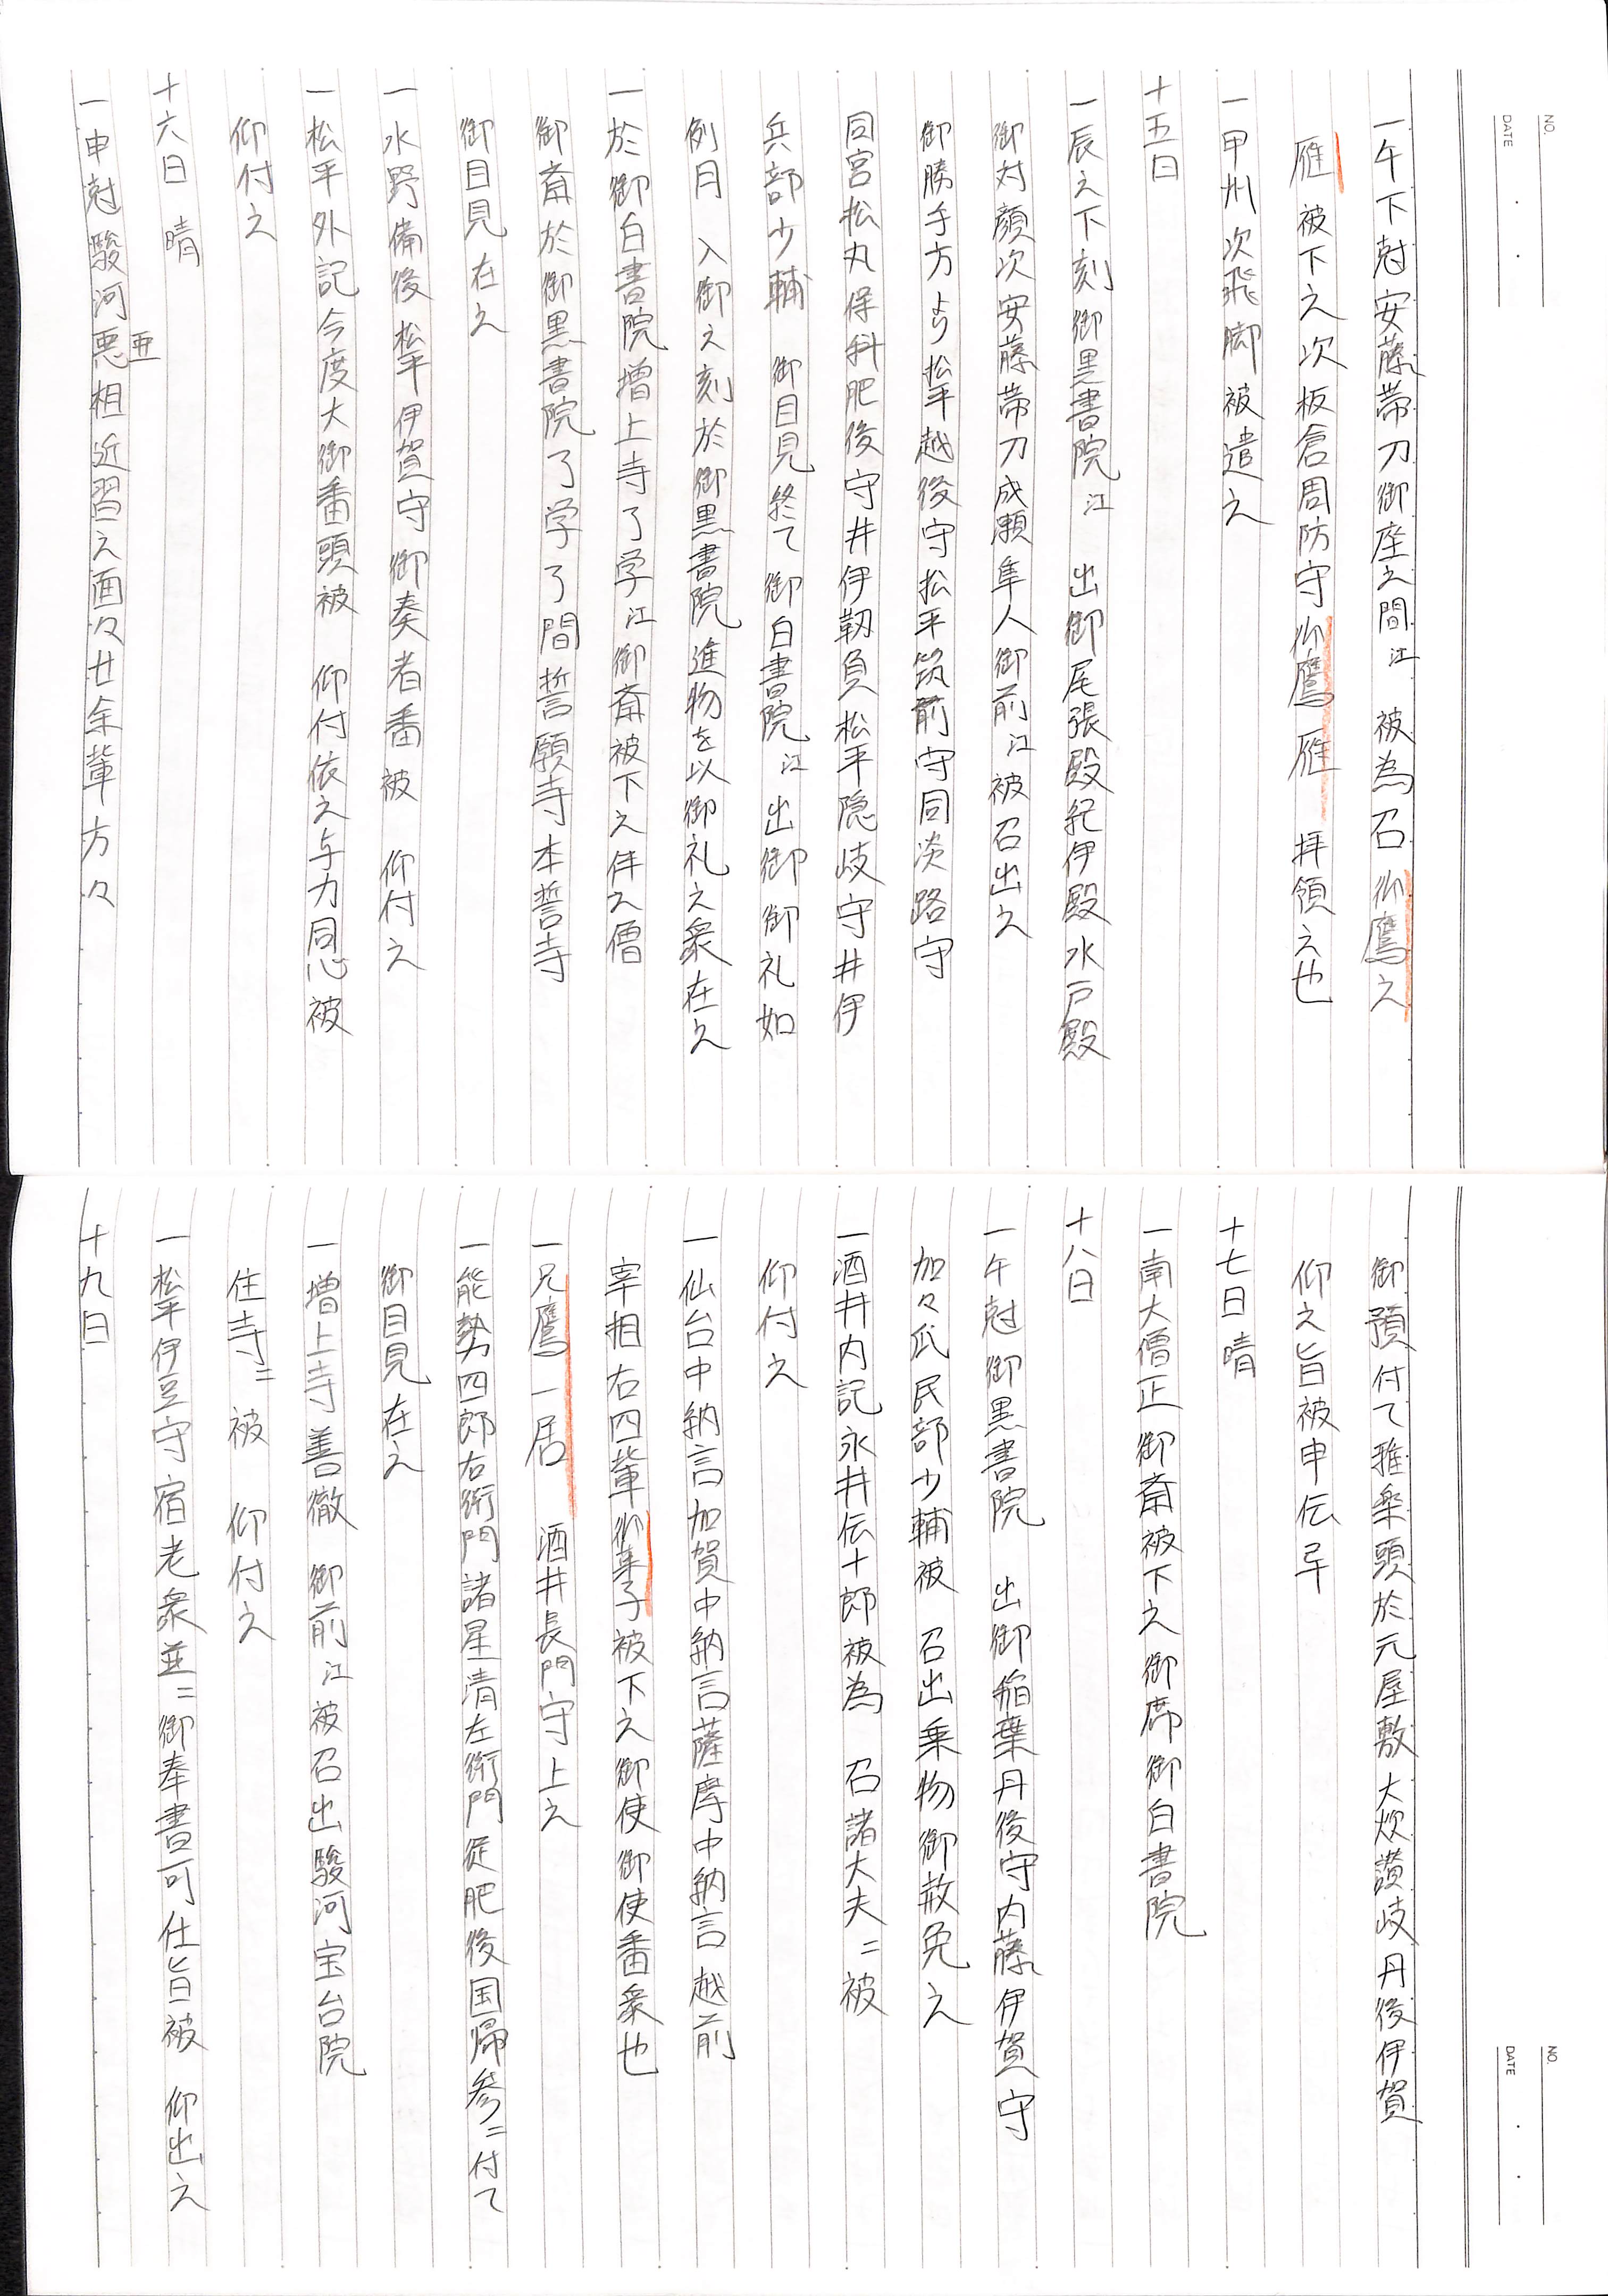 NO.
DATE
一午下尅安藤帯刀御座之間江 被為召御鷹之
雁被下之次板倉周防守御鷹雁 拝領之也
一甲州次飛脚被遣之
十五日
一辰之下刻御黒書院江 出御尾張殿紀伊殿水戸殿
御対顔次安藤帯刀成瀬隼人御前江被召出之
御勝手方より松平越後守松平筑前守同淡路守
同宮松丸保科肥後守井伊靱負松平隠岐守井伊
兵部少輔 御目見終て御白書院江出御御礼如
例月 入御之刻於御黒書院進物を以御礼之衆在之
一於御白書院増上寺了学江御斎被下之伴之僧
御斎於御黒書院了学了間誓願寺本誓寺
御目見在之
一水野備後松平伊賀守御奏者番被 仰付之
一松平外記今度大御番頭被 仰付依之与力同心被
仰付之
十六日 晴
一申尅駿河悪亜相近習之面々廿余輩方々
NO.
DATE
御預付て雅楽頭於元屋敷大炊讃岐丹後伊賀
仰之旨被申伝早
十七日晴
一南大僧正御斎被下之御席御白書院
十八日
一午尅御黒書院 出御稲葉丹後守内藤伊賀守
加々爪民部少輔被 召出乗物御赦免之
一酒井内記永井伝十郎被為 召諸大夫ニ被
仰付之
一仙台中納言加賀中納言薩摩中納言越前
宰相右四輩御菓子被下之御使御使番衆也
一兄鷹一居 酒井長門守上之
一能勢四郎右衛門諸星清左衛門従肥後国帰参ニ付て
御目見在之
一増上寺善徹 御前江被召出駿河宝台院
住寺ニ被 仰付之
一松平伊豆守宿老衆並ニ御奉書可仕旨被 仰出之
十九日